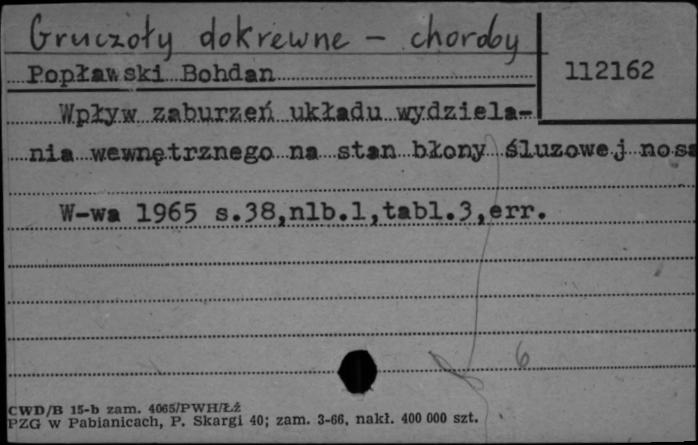 Gruczoły dokrewne - choroby
Popławski Bohdan
112162
Wpływ zaburzeń układu wydziela-
nia wewnętrznego na stan błony śluzowej nosa
W-wa 1965 s.38,nlb.1,tabl.3,err.
6
CWD/B 15-b zam. 4065/PWH/Łź
PZG w Pabianicach, P. Skargi 40; zam. 3-66, nakł. 400 000 szt.